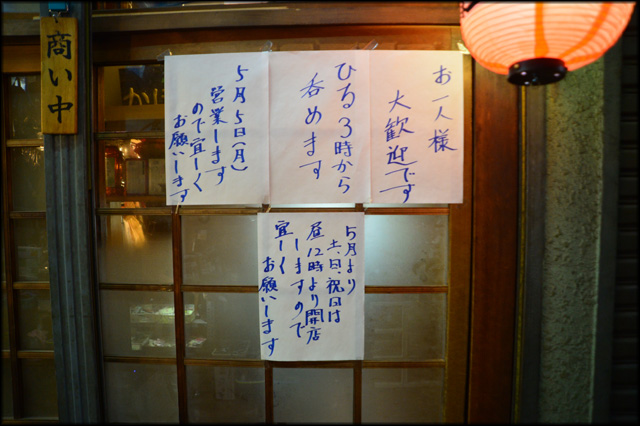 商い中
お一人様
大歓迎です
ひる3時から
呑めます
5月5日(月)
営業します
ので宜しく
お願いします
5月より
土、日、祝日は
昼12時より開店
しますので
宜しく
お願いします